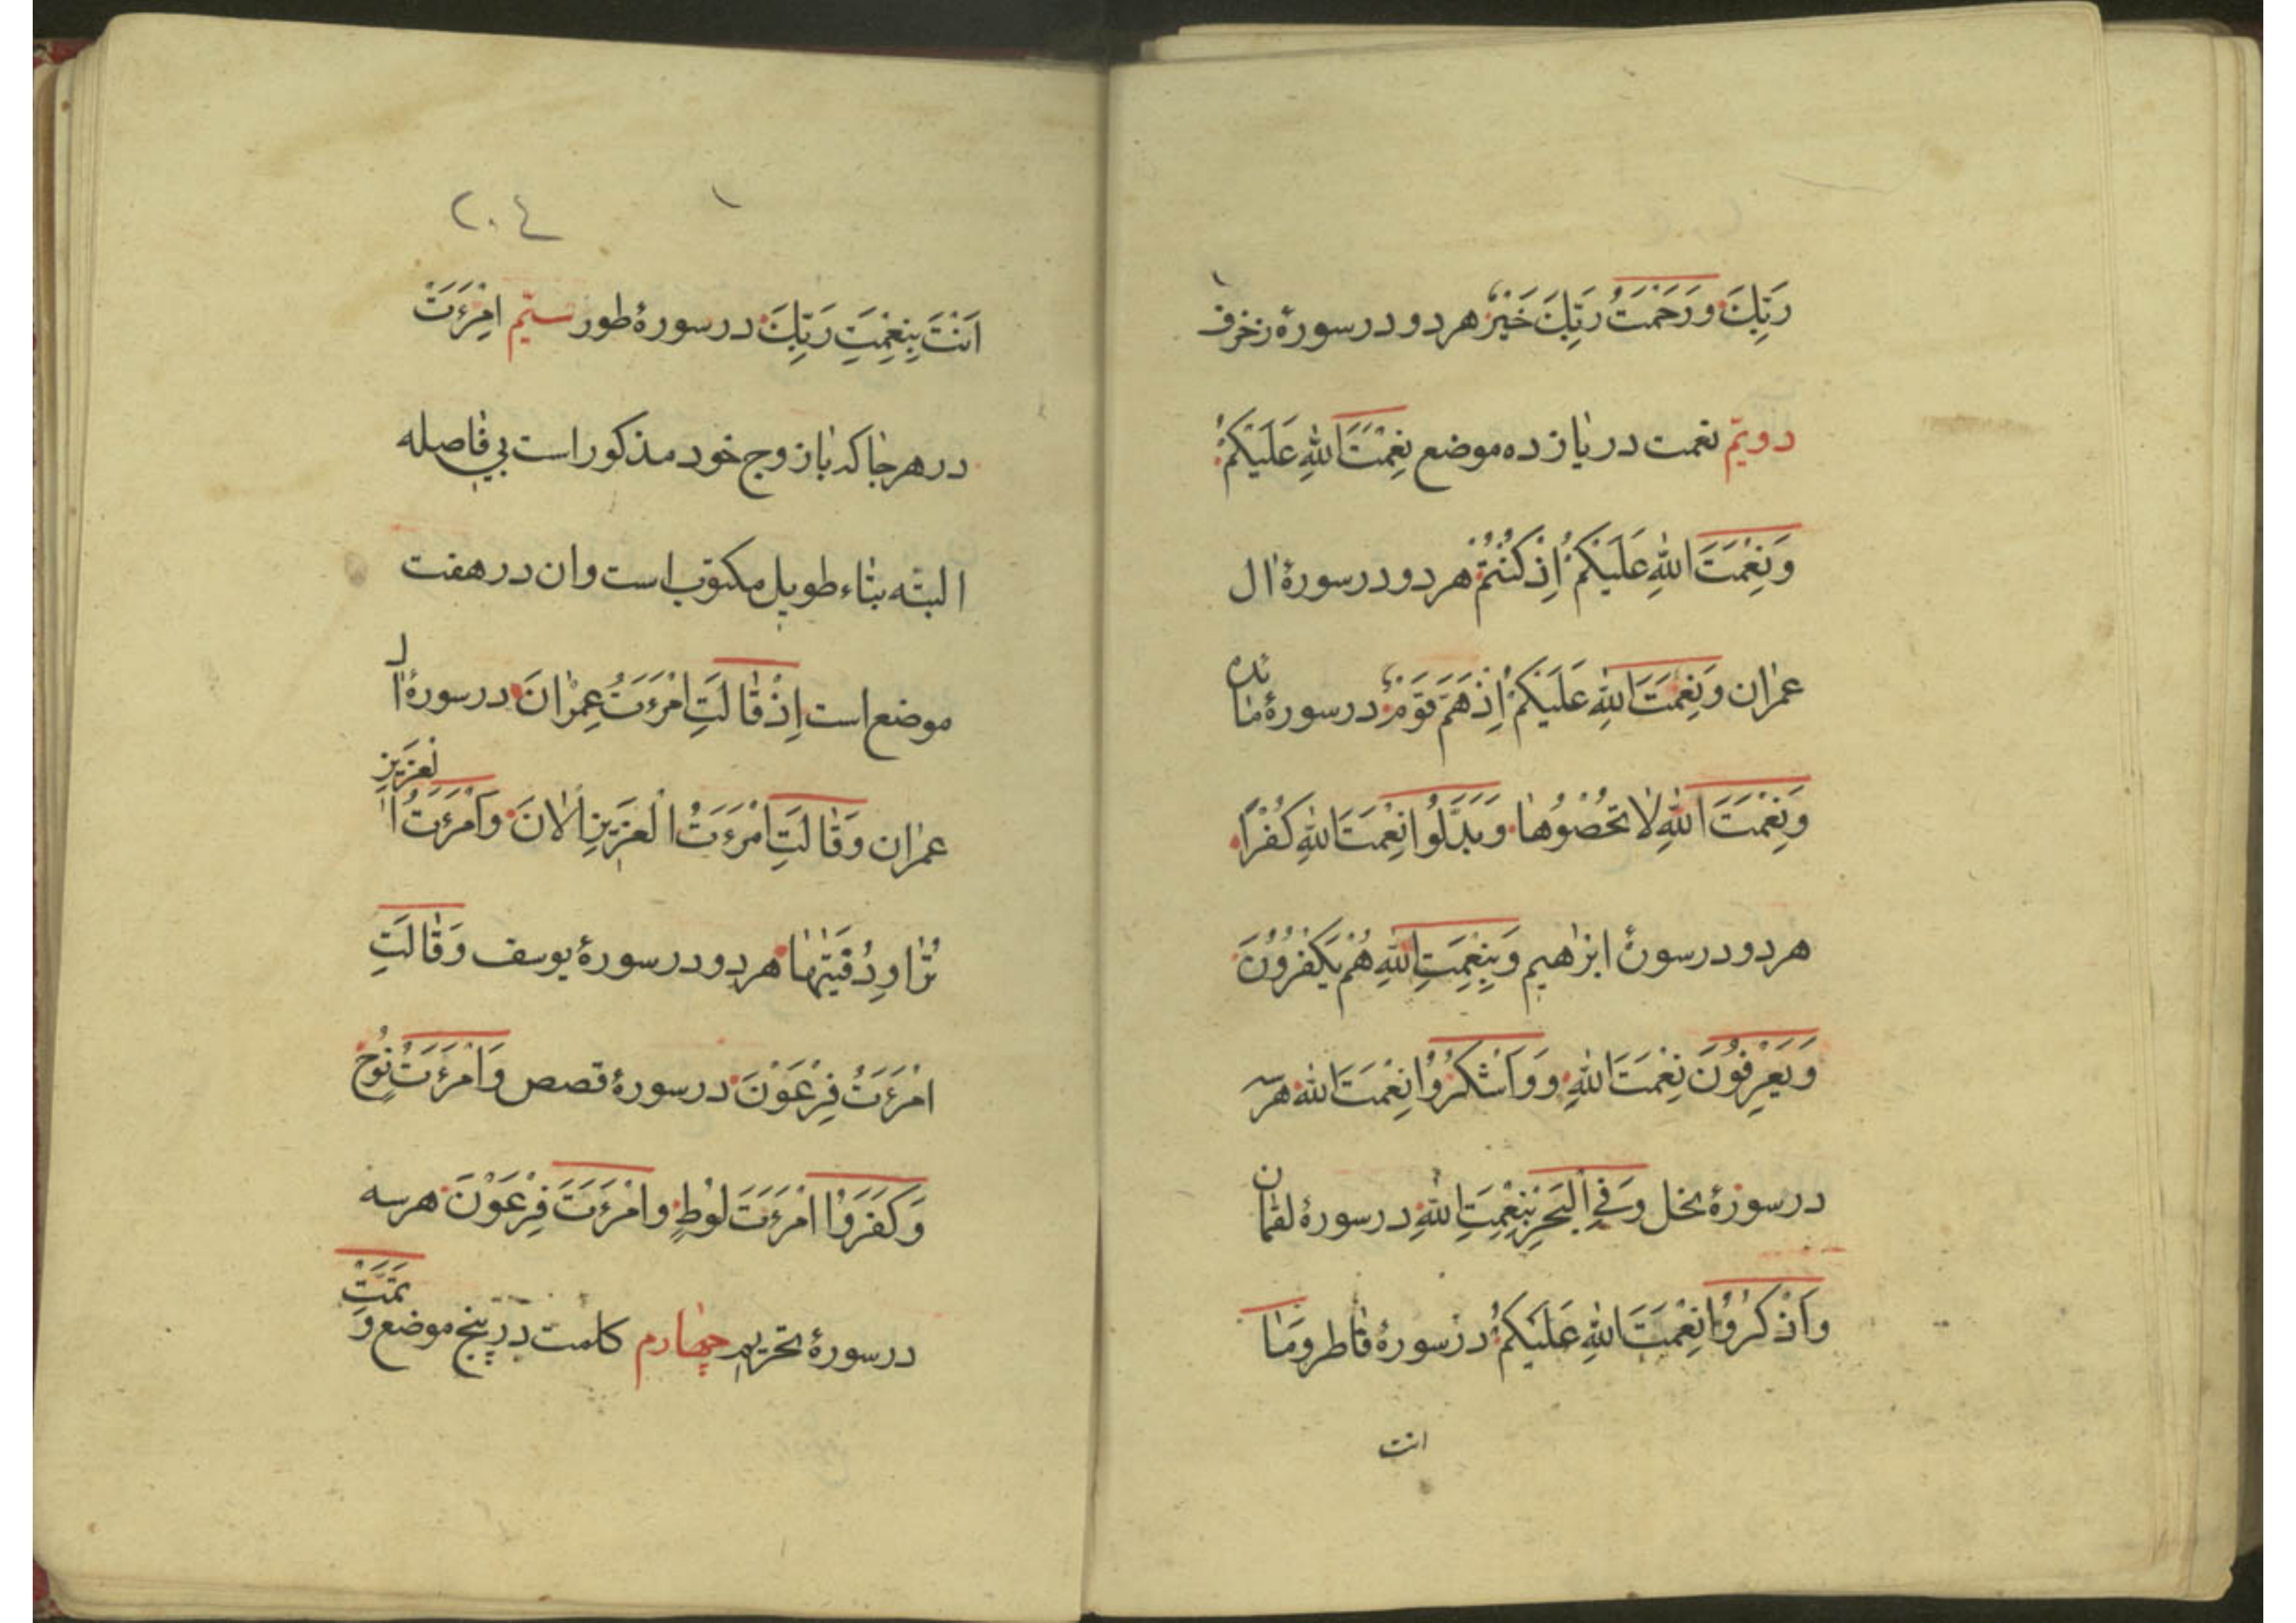 رَبِّكَ وَرَحْمَتُ رَبِّكَ خَيْرٌ هر دو در سورهٔ زخرف
دویّم نعمت در یازده موضع نِعْمَتَ اللهِ عَلَيْكُمْ
وَنِعْمَتَ اللهِ عَلَيْكُمْ اِذْ كُنْتُمْ هر دو در سورهٔ ال
عمران وَنِعْمَتَ اللهِ عَلَيْكُمْ اِذْ هَمَّ قَوْمٌ در سورهٔ مائده
وَنِعْمَتَ اللهِ لَا تُحْصُوهَا وَبَدَّلُوا نِعْمَتَ اللهِ كُفْرًا
هر دو در سورهٔ ابرٰهيم وَبِنِعْمَتِ اللهِ هُمْ يَكْفُرُونَ
وَيَعْرِفُونَ نِعْمَتَ اللهِ وَوَاشْكُرُوا نِعْمَتَ اللهِ هر سه
در سورهٔ نحل وَفِي الْبَحْرِ بِنِعْمَتِ اللهِ در سورهٔ لقمان
وَاذْكُرُوا نِعْمَتَ اللهِ عَلَيْكُمْ در سورهٔ فاطر وَمَا
انت
٢٠٤
اَنْتَ بِنِعْمَتِ رَبِّكَ در سورهٔ طور سیّم امْرَءَتْ
در هر جا که با زوج خود مذکور است بی فاصله
البته بتاء طویل مکتوب است و ان در هفت
موضع است اِذْ قَالَتِ امْرَءَتُ عِمْرٰانَ در سورهٔ اٰل
عمران وَقَالَتِ امْرَءَتُ الْعَزِيزِ الْاٰنَ وَامْرَءَتُ الْعَزِيزِ
تُرَاوِدُ فَتٰيهَا هر دو در سورهٔ یوسف وَقَالَتِ
امْرَءَتُ فِرْعَوْنَ در سورهٔ قصص وَامْرَءَتَ نُوحٍ
وَكَفَرُوا امْرَءَتَ لُوطٍ وامْرَءَتَ فِرْعَوْنَ هر سه
در سورهٔ تحریم چهارم کلمت در پنج موضع وَتَمَّتْ